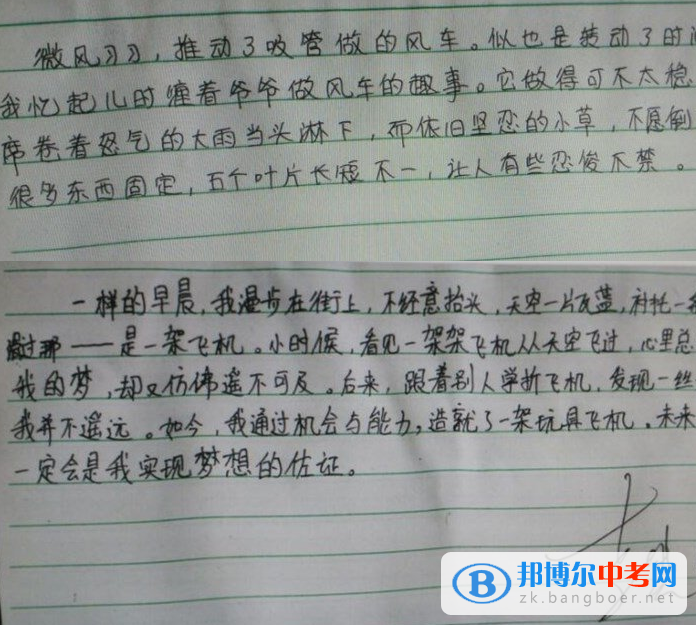 微风习习，推动了吸管做的风车。似也是转动了时
我忆起儿时缠着爷爷做风车的趣事。它做得可不太稳
席卷着怒气的大雨当头淋下，而依旧坚忍的小草，不愿倒
很多东西固定，五个叶片长短不一，让人有些忍俊不禁。
一样的早晨，我漫步在街上，不经意抬头，天空一片瓦蓝，衬托一
——是一架飞机。小时候，看见一架架飞机从天空飞过，心里总
我的梦，却又仿佛遥不可及。后来，跟着别人学折飞机，发现一丝
我并不遥远。如今，我通过机会与能力，造就了一架玩具飞机。未来
一定会是我实现梦想的佐证。
邦博尔中考网
zk.bangboer.net